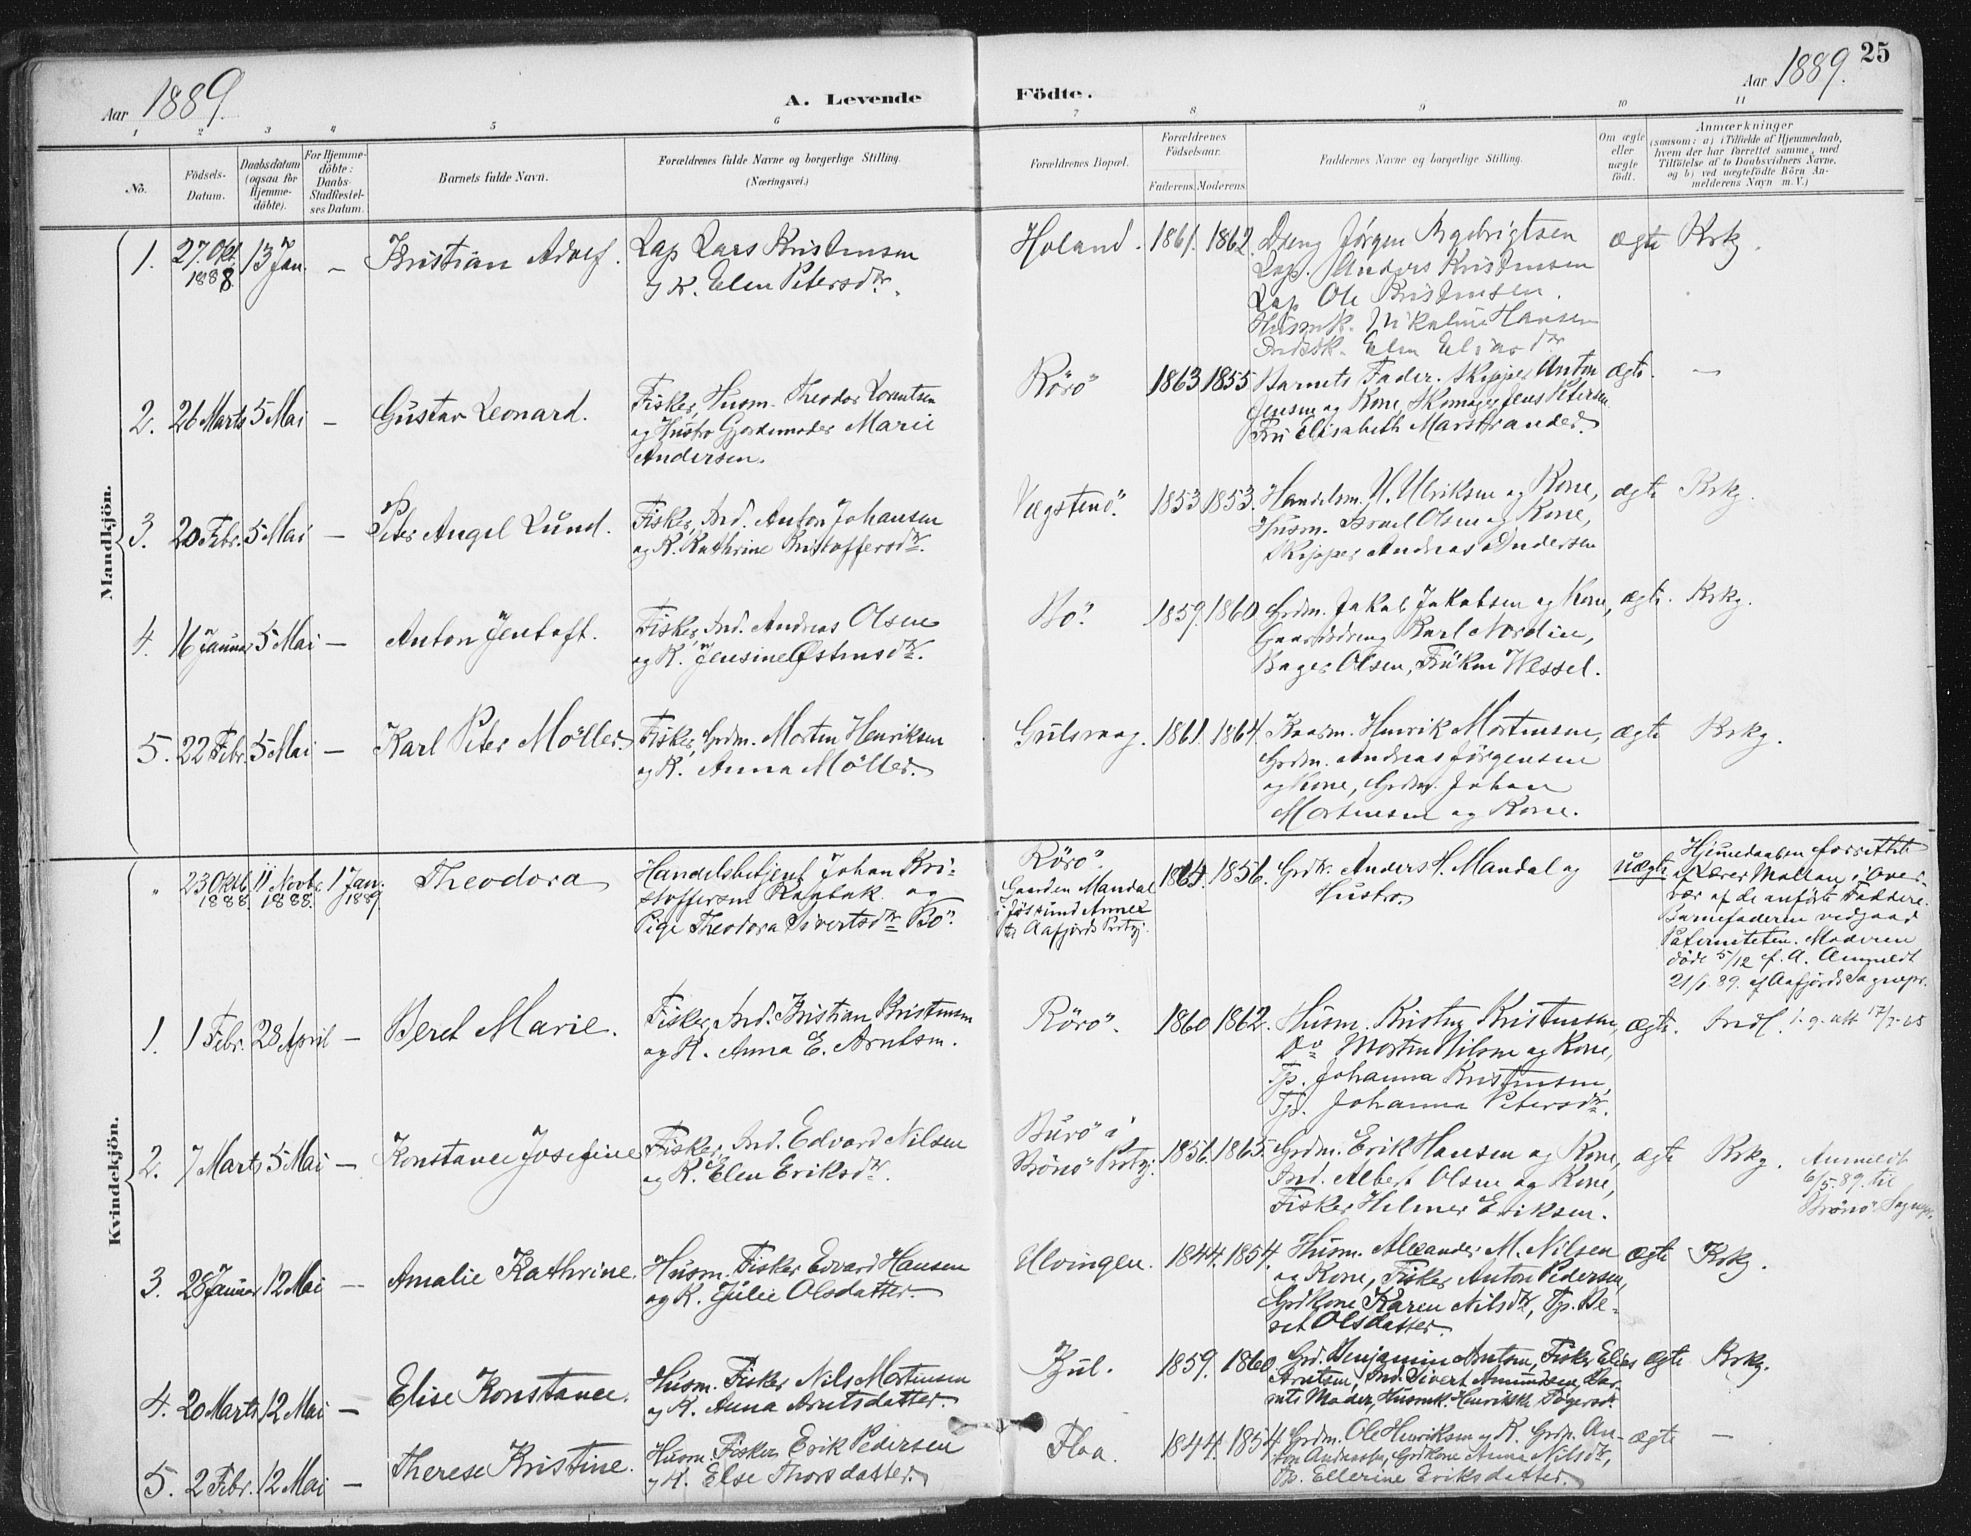 Aar 1889.
A. Levende
Födte.
Aar 1889.
25
1 2 3 4 5 6 7 8 9 10 11
No.
Födsels-
Datum.
Daabsdatum
(ogsaa for
Hjemme-
döbte).
For Hjemme-
döbte:
Daabs-
Stadfæstel-
ses Datum.
Barnets fulde Navn.
Forældrenes fulde Navne og borgerlige Stilling.
(Næringsvei.)
Forældrenes Bopæl.
Forældrenes
Födselsaar.
Faderens. Moderens.
Faddernes Navne og borgerlige Stilling.
Om ægte
eller
uægte
födt.
Anmærkninger
(saasom: a) i Tilfælde af Hjemmedaab,
hvem der har forrettet samme, med
Tilföielse af to Daabsvidners Navne,
og b) ved uægtefödte Börn An-
melderens Navn m. V.)
Mandkjön.
1. 27. Okt. 1888 13 Jan. — Kristian Adolf.
Lap Lars Kristensen
og K. Elen Petersdtr.
Holand. 1861. 1862.
Dreng Jørgen Ingebrigtsen
Lap. Anders Kristensen
Lap Ole Kristensen.
Husmk. Nikoline Hansen
Indsk. Elen Eliasdtr
ægte Krkg.
2. 26 Marts 5 Mai — Gustav Leonard.
Fisker, Husm. Theodor Lorntsen
og Hustro Gjordemoder Marie
Andersen.
Rörö 1863 1855
Barnets Fader. Skipper Anton
Jensen og Kone, Skomager Jens Petersen
Fru Elisabeth Marstrander.
ægte. —
3. 20 Febr. 5 Mai — Peter Angel Lund.
Fisker, Ind. Anton Johansen
og K. Kathrine Kristoffersdtr.
Vægstenö. 1853 1853.
Handelsm. N. Ulriksen og Kone,
Husm. Israel Olsen og Kone,
Skipper Andreas Andersen
ægte Krkg.
4. 16 Januar 5 Mai — Anton Jentoft.
Fisker, Ind. Andreas Olsen
og K. Jensine Østensdtr.
Bo. 1859. 1860
Grdm. Jakob Jakobsen og Kone,
Gaardsdreng Karl Nordin,
Bager Olsen, Frøken Wessel.
ægte. Krkg.
5. 22 Febr. 5 Mai — Karl Peter Möller
Fisker, Grdm. Morten Henriksen
og K. Anna Möller.
Gulsvaag. 1861. 1864.
Kaarm. Henrik Mortensen,
Grdm. Andreas Jörgensen
og Kone, Grdm. Johan
Mortensen og Kone.
ægte Krkg.
Kvindekjön.
" 23 Oktb. 1888. 11 Novbr. 1888. 1 Jan. 1889 Theodora
Handelsbetjent Johan Kri-
stoffersen Rapbak og
Pige Theodora Sivertsdtr Bö.
Rörö.
Gaarden Mandal
i Jössund Annex
til Aafjords Prstgj.
1864. 1856.
Grdbr. Anders H. Mandal og
Hustro.
uægte
Hjemedaaben forrettet
af Lærer Mollan i Over-
vær af de anförte Faddere.
Barnefaderen vedgaar
Paterniteten. Moderen
döde 5/12 f. A. Anmeldt
21/1 89. af Aafjords Sognepr.
1. 1 Febr. 28 April — Beret Marie.
Fisker, Ind. Kristian Kristensen
og K. Anna E. Arntsen.
Rörö. 1860 1862.
Husm. Kristen Kristensen,
Do Morten Nilsen og Kone,
Tp. Johanna Kristensen,
Tp. Johanna Petersdtr.
ægte. Indl.
2. 7 Marts 5 Mai — Konstance Josefine
Fisker, Ind. Edvard Nilsen
og K. Elen Eriksdtr.
Burö i
Brönö Prstgj. 1856. 1865.
Grdm. Erik Hansen og Kone,
Ind. Albert Olsen og Kone,
Fisker Helmer Eriksen.
ægte Krkg.
Anmeldt
6/5. 89. til
Brönö Sognepr.
3. 28 Januar 12 Mai — Amalie Kathrine.
Husm. Fisker Edvard Hansen
og K. Julie Olsdatter.
Ulvingen. 1844. 1854.
Husm. Alexander M. Nilsen
og Kone, Fisker Anton Pedersen,
Grdkone Karen Nilsdtr, Tp. Be-
ret Olsdatter.
ægte Krkg.
4. 20 Marts 12 Mai — Elise Konstance.
Husm. Fisker Nils Mortensen
og K. Anna Arntsdatter.
Kjul. 1859. 1860.
Grd. Benjamin Arntsen, Fisker Elias
Arntsen, Ind. Sivert Amundsen, Bar-
nets Moder, Husmk. Henrikke
ægte Krkg.
5. 2 Febr. 12 Mai — Therese Kristine.
Husm. Fisker Erik Pedersen
og K. Else Thorsdatter.
Floa. 1844. 1854
Grdm. Ole Henriksen og K. Grdm. An-
ton Andersen, Grdkone Anna Nilsdtr,
Tp. Ellerine Eriksdatter.
ægte —